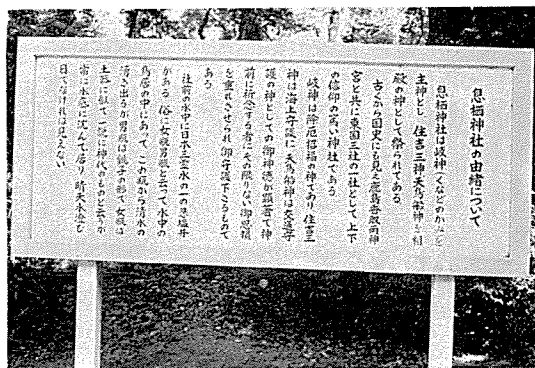 息栖神社の由緒について
息栖神社は岐神(くなどのかみ)を
主神とし 住吉三神天鳥船神を相
殿の神として祭られてある
古くから国史にも見え鹿島香取両神
宮と共に東国三社の一社として上下
の信仰の篤い神社である
岐神は除厄招福の神であり 住吉三
神は海上守護に 天鳥船神は交通守
護の神としての御神徳が顕著で 神
前に祈念する者にその限りない御恩頼
を垂れさせられ 御守護下さるもので
ある
社前の水中に日本三霊水の一の忍塩井
がある 俗に女瓶男瓶と云って水中の
鳥居の中にあって この瓶から清水の
湧き出るが男瓶は銚子の形で 女瓶は
土器に似て一説に神代のものと云うが
常に水底に沈んで居り 晴天水澄む
日でなければ見えない